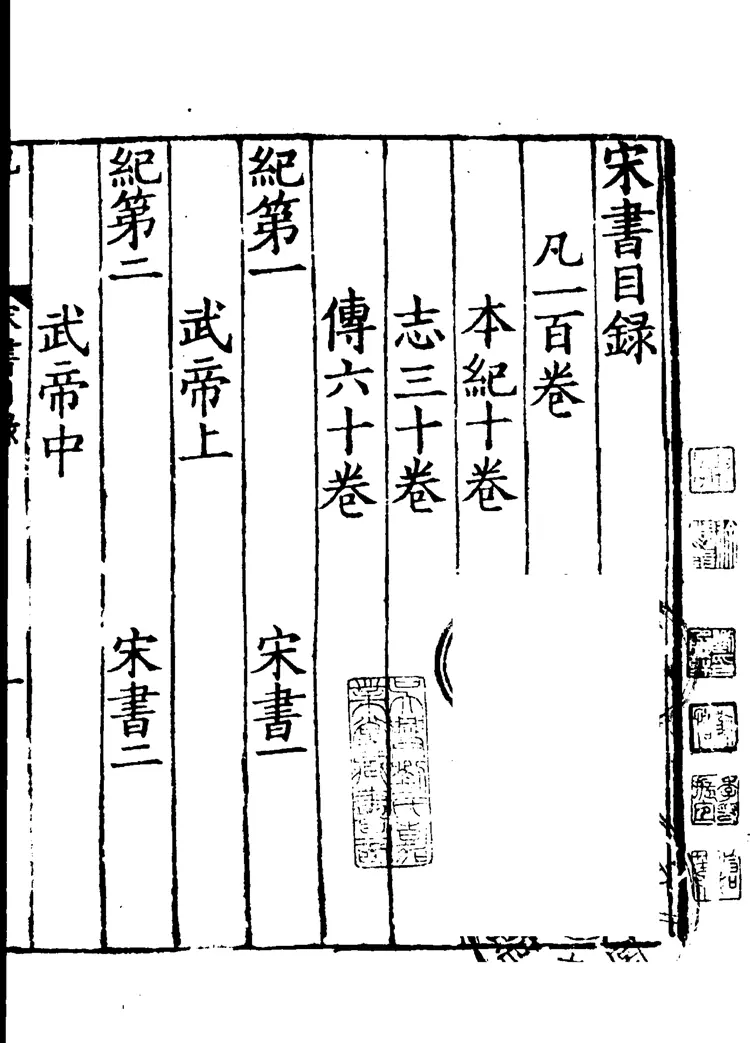 宋書目録
凡一百卷
本紀十卷
志三十卷
傳六十卷
紀第一 宋書一
武帝上
紀第二 宋書二
武帝中